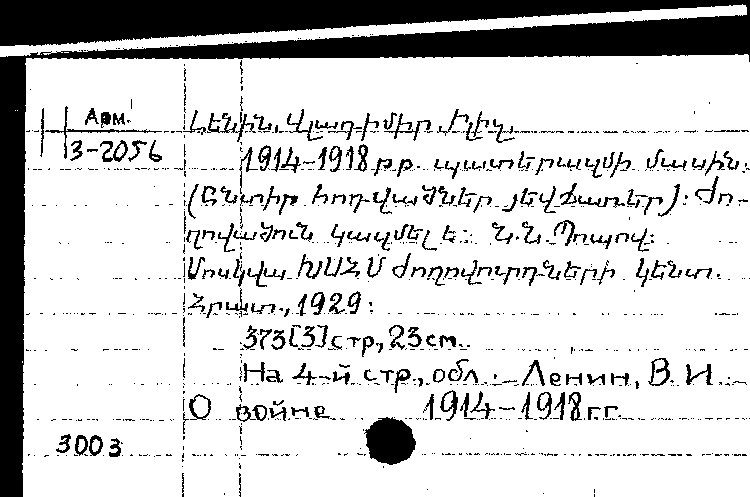 Арм.
3-2056
Լենին, Վլադիմիր Իլիչ.
1914-1918 թթ. պատերազմի մասին.
(Ընտիր հոդվածներ յեվ ճառեր): Ժո-
ղովածուն կազմել է: Ն.Ն. Պոպով:
Մոսկվա ԽՍՀՄ Ժողովուրդների կենտ.
Հրատ., 1929:
373[3] стр, 23 см.
На 4-й стр, обл.: Ленин, В. И.
О войне 1914-1918 гг.
3003